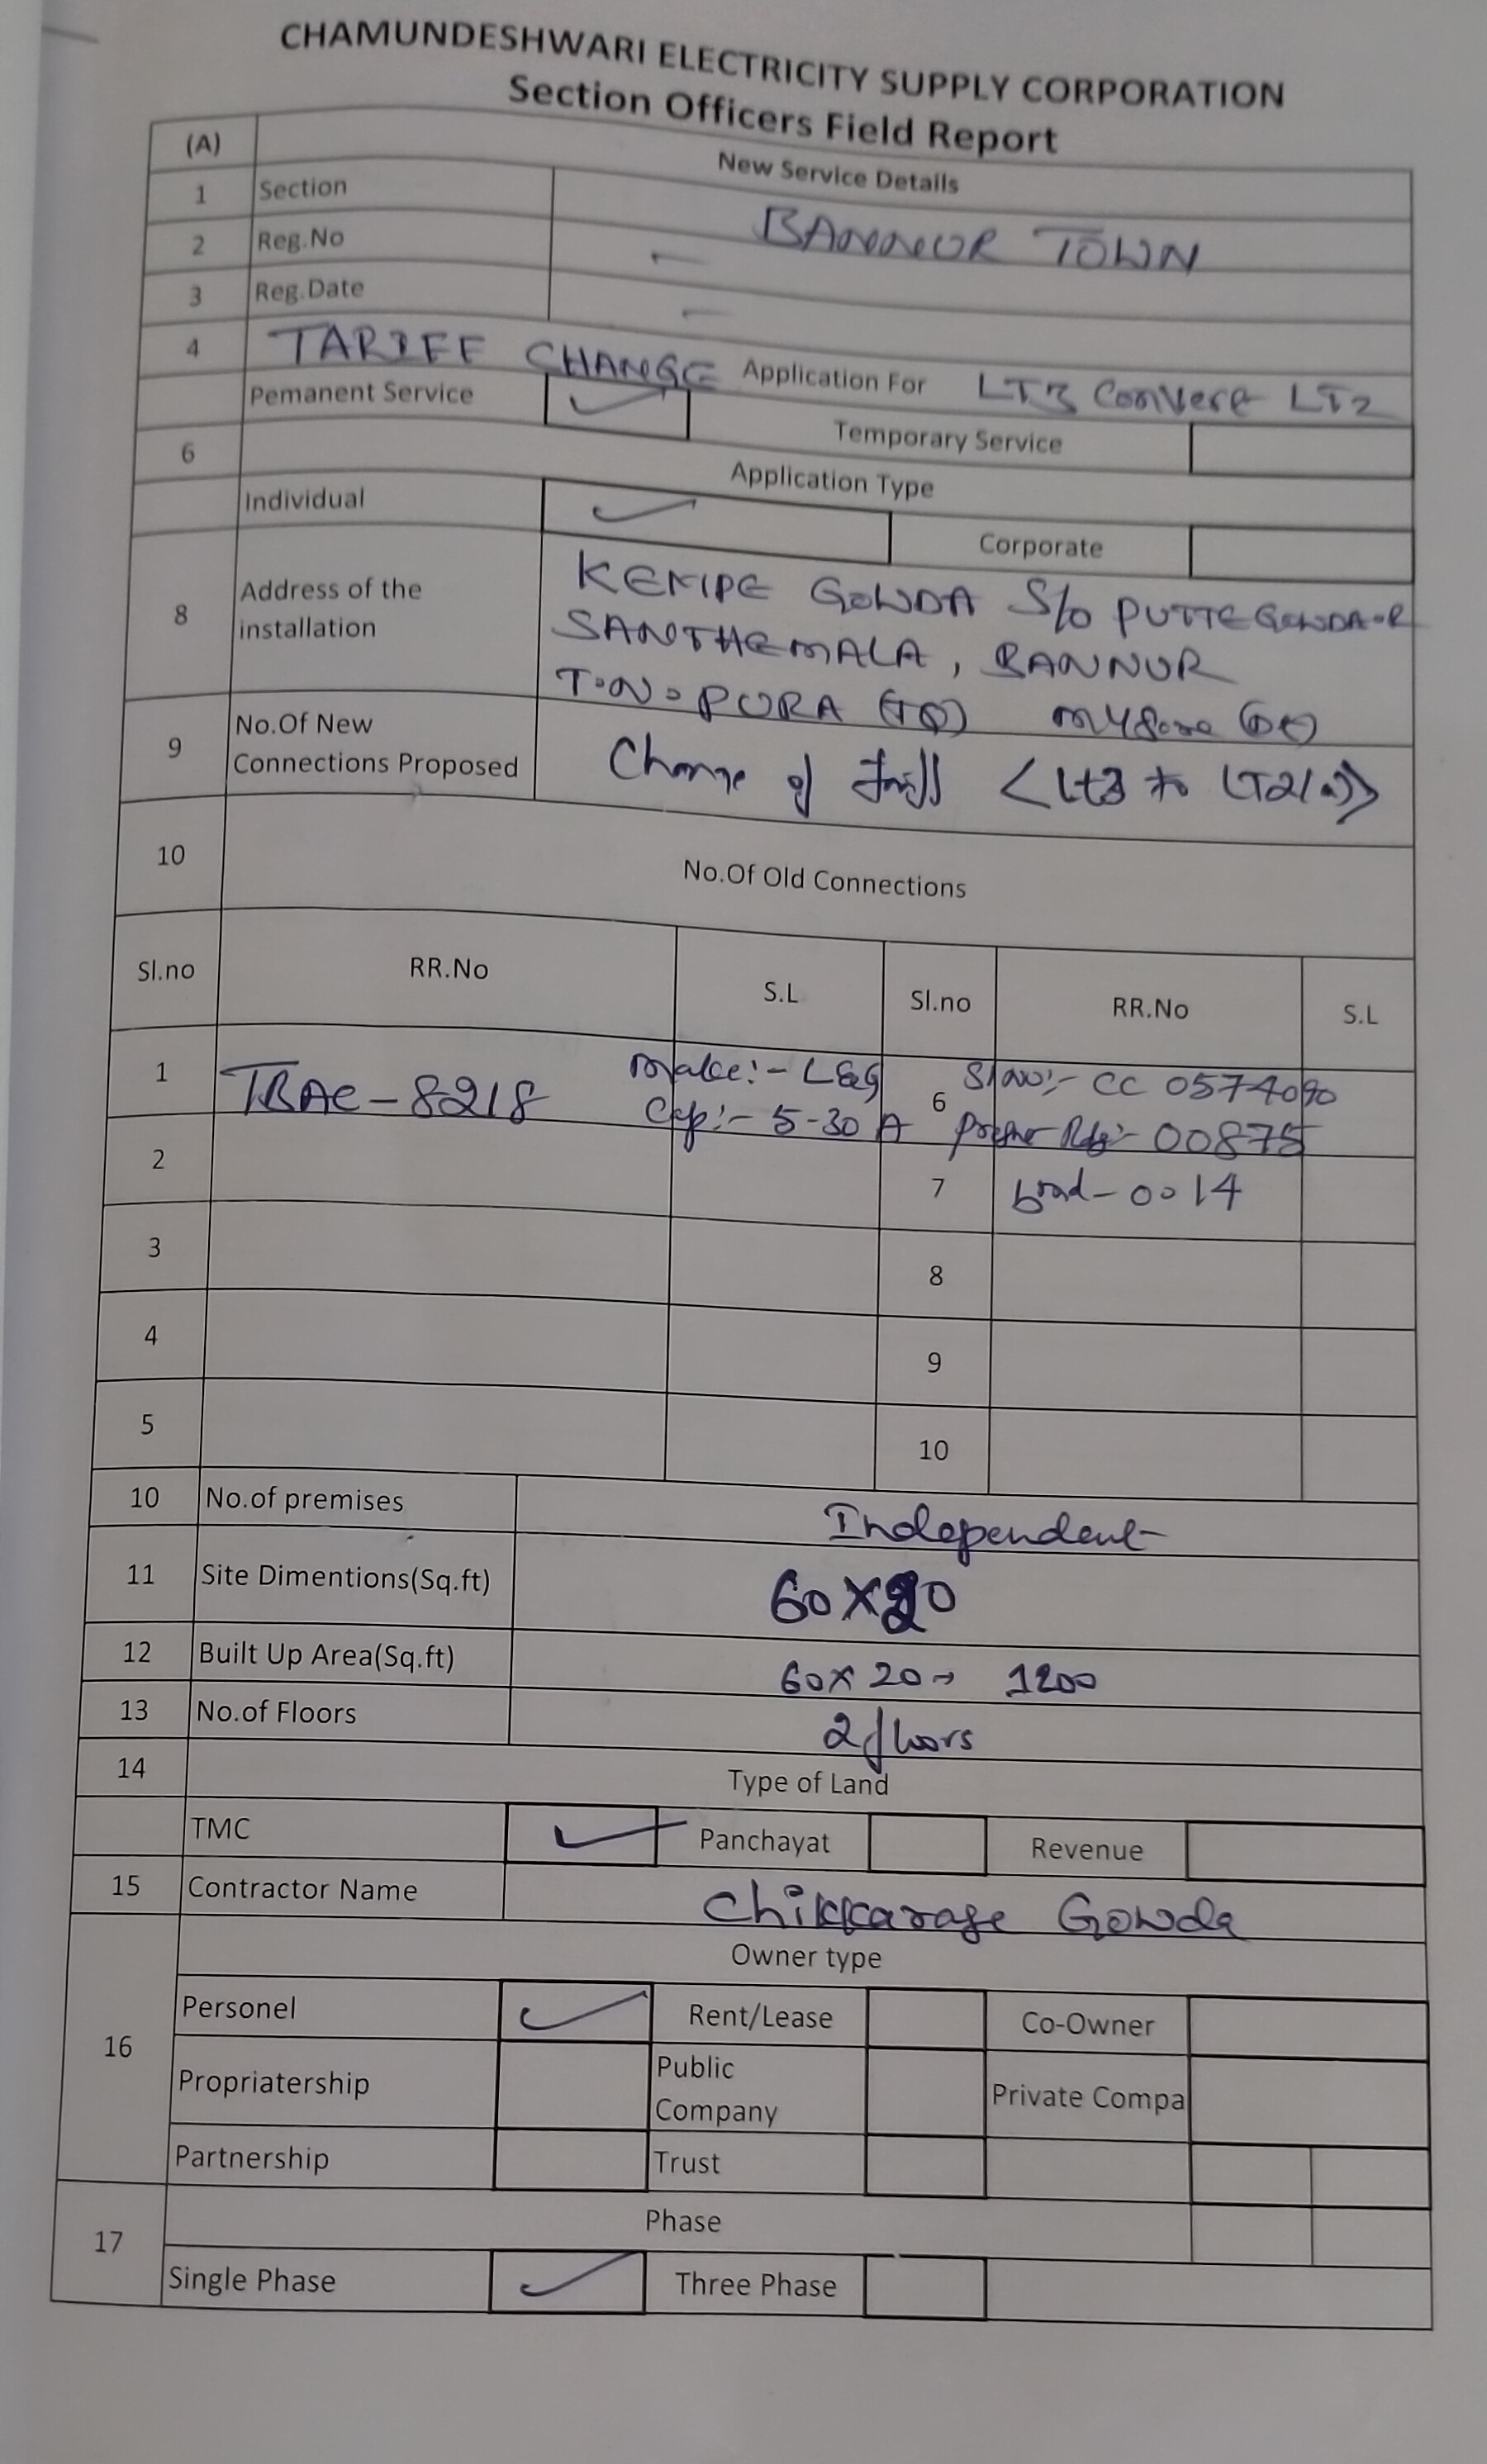 CHAMUNDESHWARI ELECTRICITY SUPPLY CORPORATION
Section Officers Field Report
(A) New Service Details
1 Section BANNUR TOWN
2 Reg.No –
3 Reg.Date –
4 TARIFF CHANGE Application For LT3 Convert LT2
Pemanent Service ✓ Temporary Service
6 Application Type
Individual ✓ Corporate
8 Address of the installation KEMPE GOWDA S/o PUTTEGOWDA
SANTHEMALA, BANNUR
T.N.PURA (TQ) Mysore (Dt)
9 No.Of New Connections Proposed Change of <Lt3 to LT2(a)>
10 No.Of Old Connections
Sl.no RR.No S.L Sl.no RR.No S.L
1 TBAC-8218 Make:- L&G 6 Sl no:- CC 0574090
Cap:- 5-30 A 00875
2 7 0014
3 8
4 9
5 10
10 No.of premises Independent
11 Site Dimentions(Sq.ft) 60X20
12 Built Up Area(Sq.ft) 60X20 → 1200
13 No.of Floors 2 floors
14 Type of Land
TMC ✓ Panchayat Revenue
15 Contractor Name Chikkarase Gowda
Owner type
16 Personel ✓ Rent/Lease Co-Owner
Propriatership Public Company Private Compa
Partnership Trust
17 Phase
Single Phase ✓ Three Phase